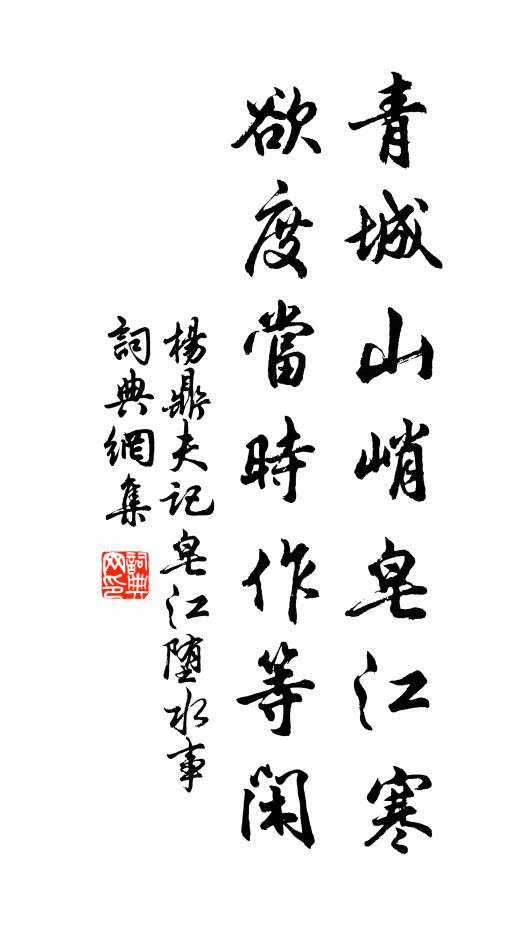 青城山峭皂江寒
欲度當時作等閑
楊鼎夫記皂江墮水事
詞典網集
詞典網印